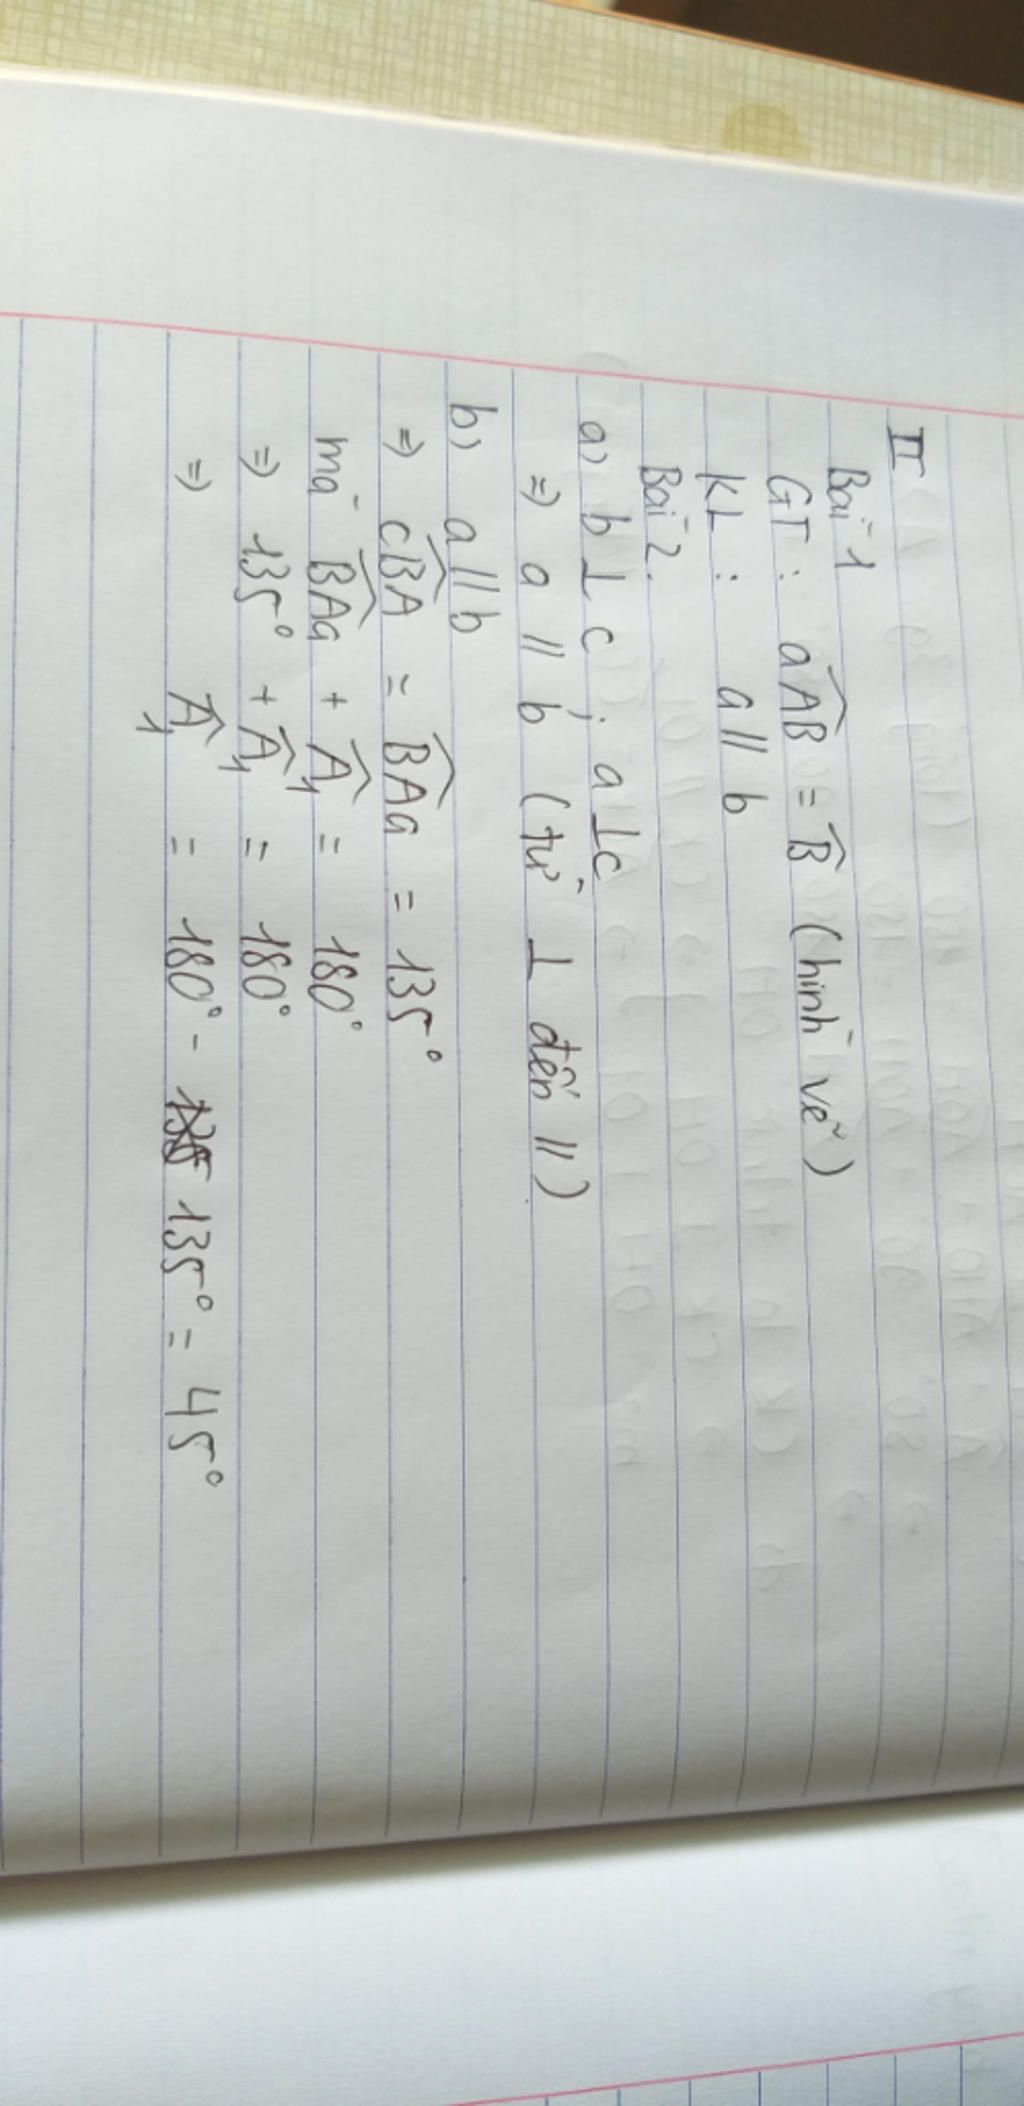 II
Bài 1
GT : aAB̂ = B̂ (hình vẽ)
KL : a // b
Bài 2.
a) b ⊥ c ; a ⊥ c
⇒ a // b (từ ⊥ đến //)
b) a // b
⇒ cBÂ = BÂa = 135°
mà BÂa + Â₁ = 180°
⇒ 135° + Â₁ = 180°
⇒ Â₁ = 180° - 135° = 45°